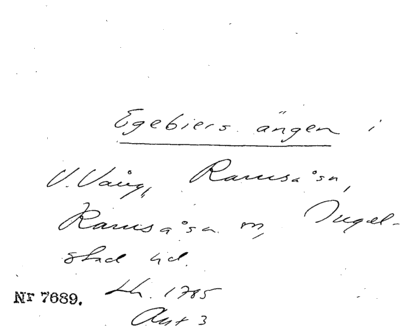 Egebiers ängen i
V. Vång, Ramsåsa,
Ramsåsa sn, Ingel-
stad hd.
Nr 7689. Lh. 1785
Akt 3